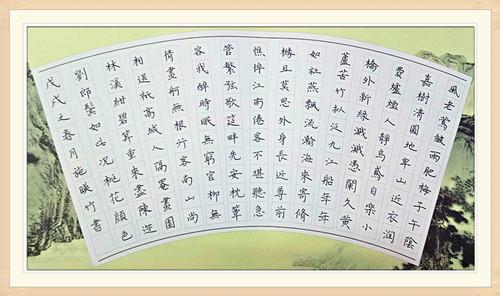 風老鶯雛雨肥梅子午陰
嘉樹清圓地卑山近衣潤
費爐煙人靜烏鳶自樂小
橋外新綠濺濺憑闌久黃
蘆苦竹拟泛九江船年年
如社燕飄流瀚海來寄修
椽且莫思外身長近尊前
憔悴江南倦客不堪聽急
管繁弦歌筵畔先安枕簟
容我醉時眠無窮官柳無
情畫舸無根行客南山尚
相送祇高城人隔罨畫園
林溪紺碧算重來盡陳迹
劉郎鬢如此況桃花顏色
戊戌之春月施暎竹書